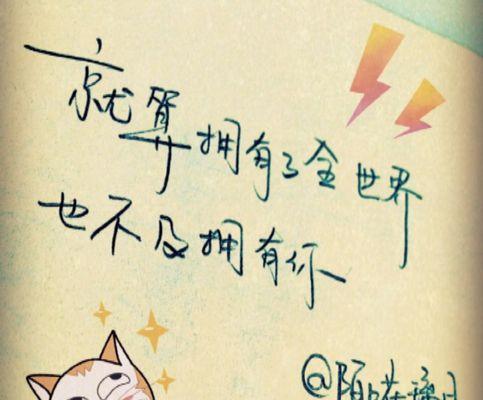 就算拥有了全世界
也不及拥有你